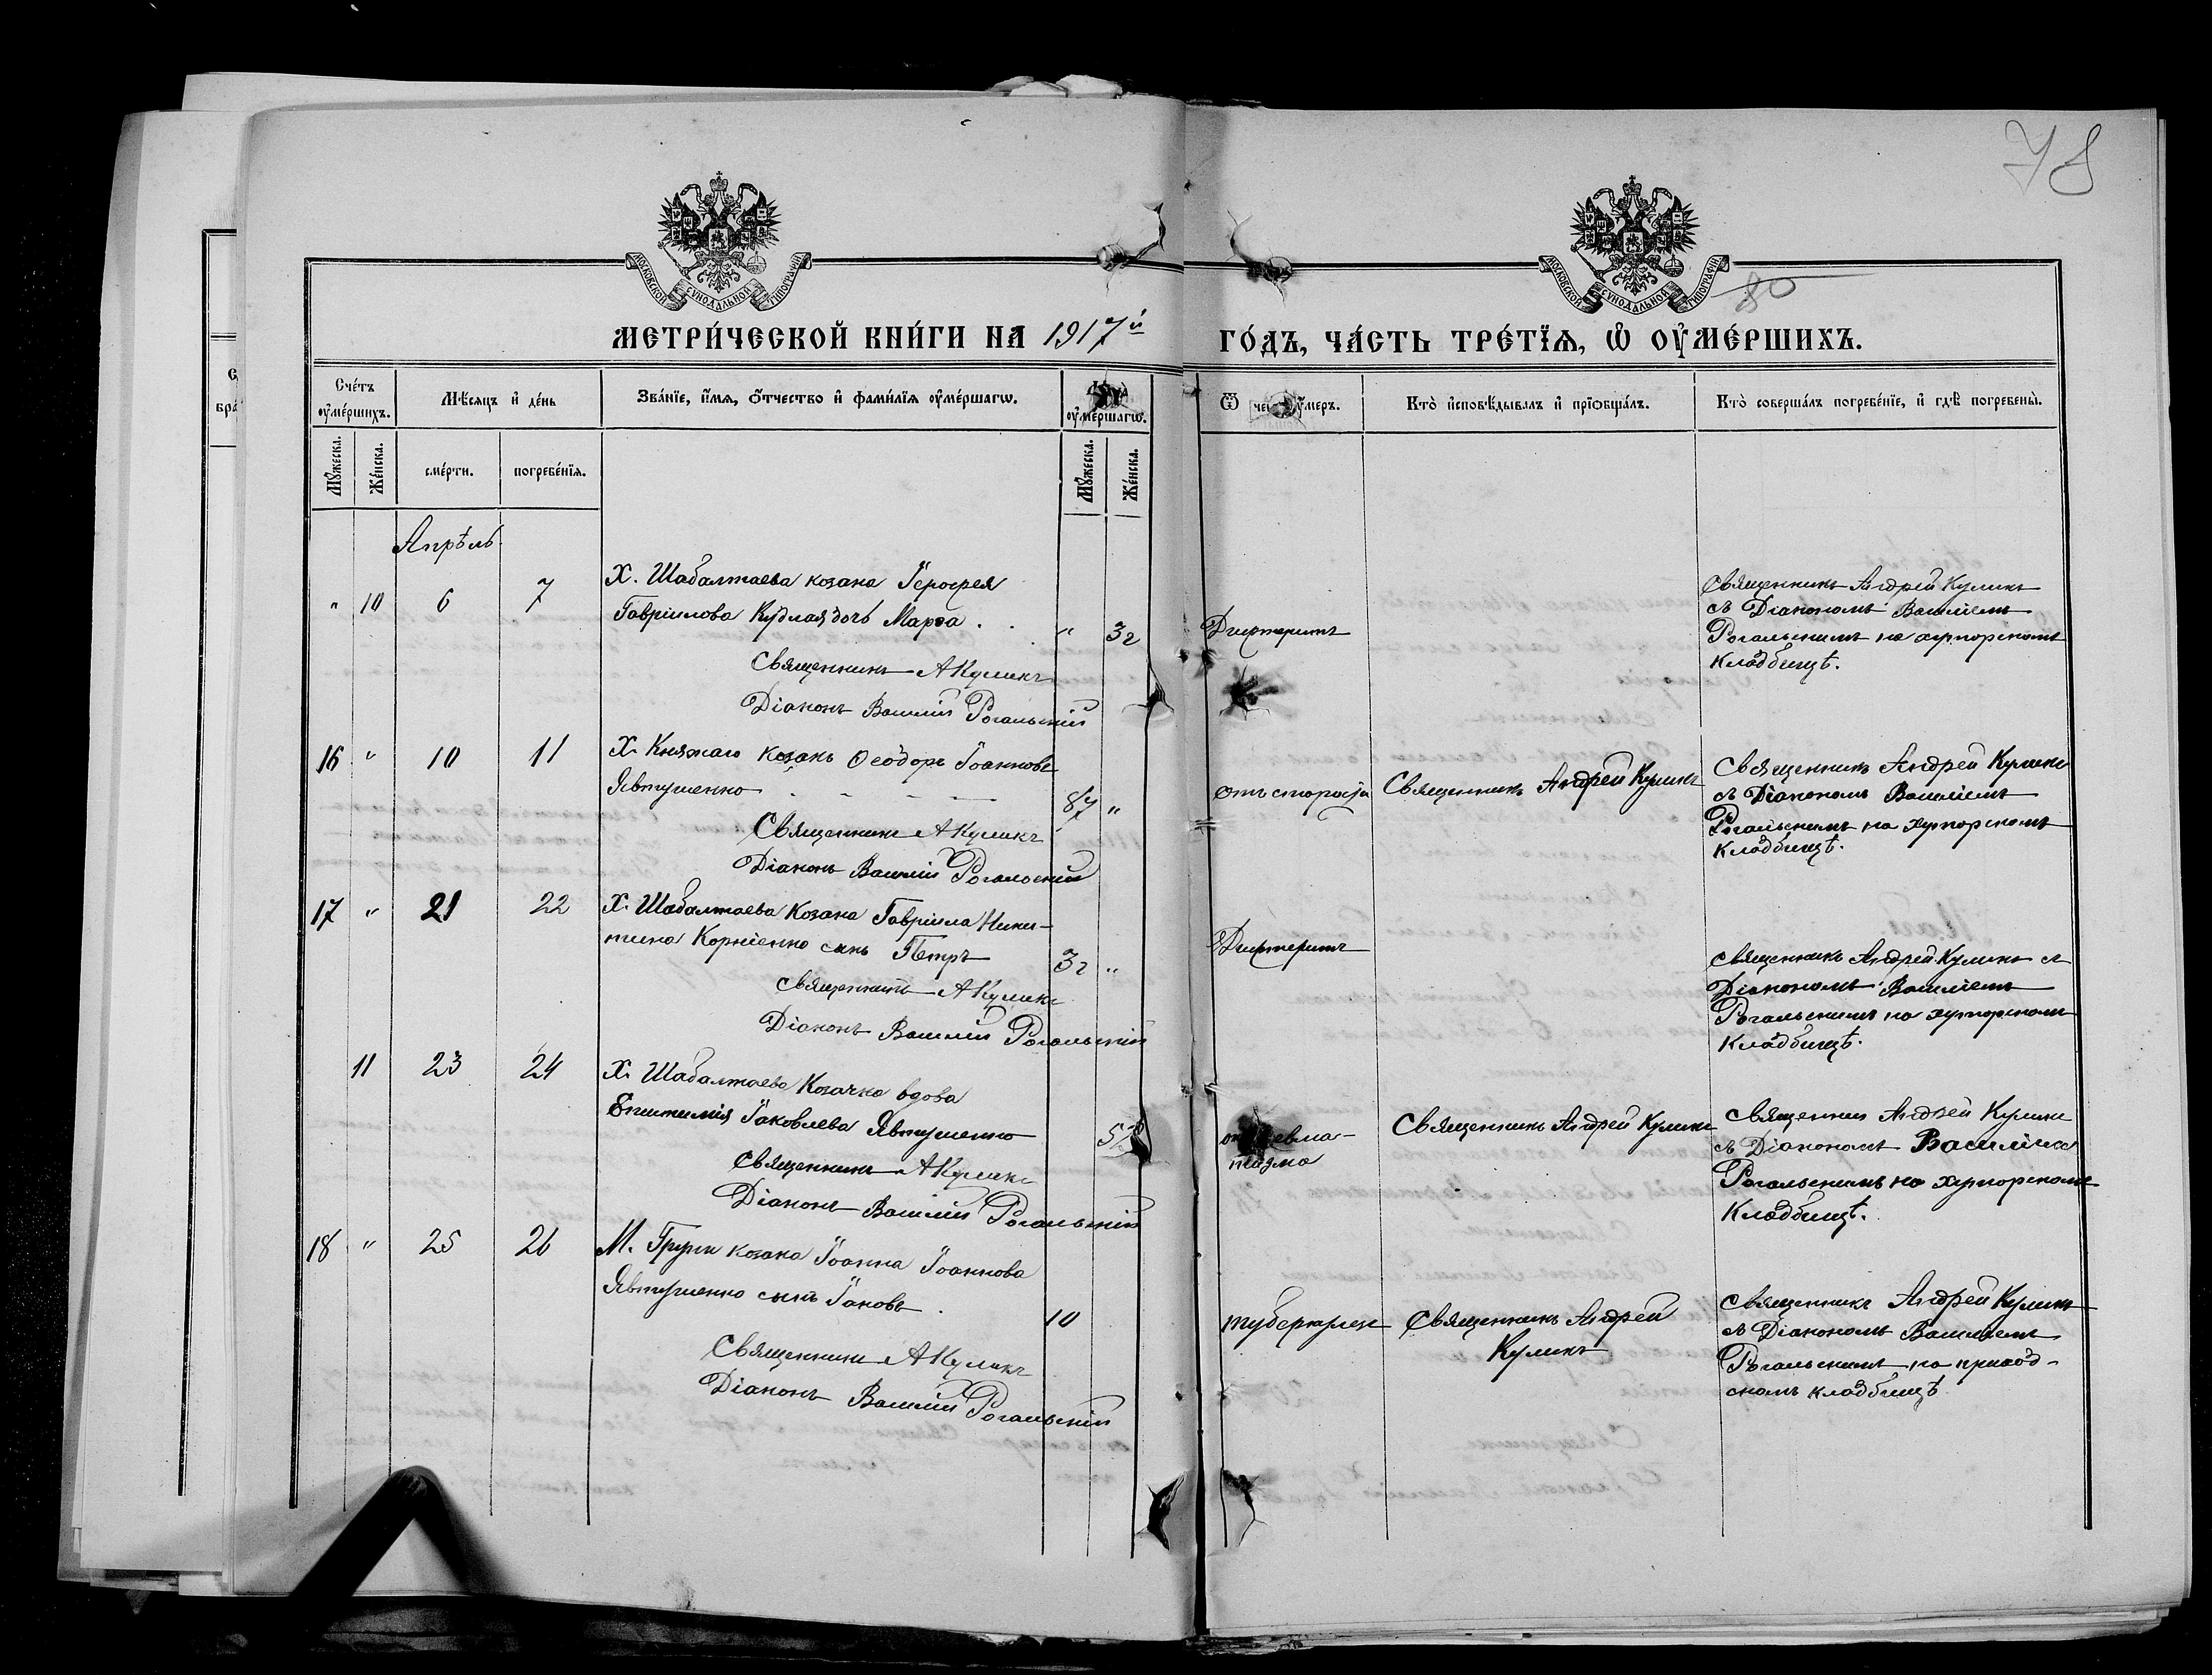 78
МОСКОВСКОЙ СУНОДАЛЬНОЙ ТИПОГРАФИИ
МОСКОВСКОЙ СУНОДАЛЬНОЙ ТИПОГРАФИИ
80
МЕТРИ́ЧЕСКОЙ КНИ́ГИ НА 1917й
ГО́ДЪ, ЧА́СТЬ ТРЕ́ТЇѦ, Ѡ ОУ҆МЕ́РШИХЪ.
Сче́тъ оу҆ме́ршихъ.
Мѣ́сѧцъ и҆ де́нь
Зва́нїе, и҆́мѧ, ѻ҆́тчество и҆ фами́лїѧ оу҆ме́ршагѡ.
оу҆ме́ршагѡ.
Мꙋ́жеска.
Же́нска.
сме́рти.
погребе́нїѧ.
Мꙋ́жеска.
Же́нска.
Ѿ чегѡ̀ оу҆́меръ.
Кто̀ и҆сповѣ́дывалъ и҆ прїѡбща́лъ.
Кто̀ соверша́лъ погребе́нїе, и҆ гдѣ̀ погребены̀.
Апрѣль
" 10 6 7
Х. Шабалтаева козака Іерофея
Гавріилова Кудлая дочь Марѳа . . " 3 г
Священникъ А Куликъ
Діаконъ Василій Рогальскій
Дифтеритъ
Священникъ Андрей Куликъ
съ Діакономъ Василіемъ
Рогальскимъ на хуторскомъ
кладбищѣ.
16 " 10 11
Х. Княжаго козакъ Ѳеодоръ Іоанновъ
Явтушенко 87 "
Священникъ А Куликъ
Діаконъ Василій Рогальскій
отъ старости
Священникъ Андрей Куликъ
Священникъ Андрей Куликъ
съ Діакономъ Василіемъ
Рогальскимъ на хуторскомъ
кладбищѣ.
17 " 21 22
Х. Шабалтаева козака Гавріила Ники-
тина Корніенко сынъ Петръ 3 г "
Священникъ А Куликъ
Діаконъ Василій Рогальскій
Дифтеритъ
Священникъ Андрей Куликъ съ
Діакономъ Василіемъ
Рогальскимъ на хуторскомъ
кладбищѣ.
11 23 24
Х. Шабалтаева Козачка вдова
Епитимія Іаковлева Явтушенко
Священникъ А Куликъ
Діаконъ Василій Рогальскій
Священникъ Андрей Куликъ
Священник Андрей Куликъ
съ Діакономъ Василіемъ
Рогальскимъ на хуторскомъ
Кладбищѣ.
18 " 25 26
М. Груни козака Іоанна Іоаннова
Явтушенко сынъ Іаковъ . 10
Священникъ А Куликъ
Діаконъ Василій Рогальскій
туберкулез
Священникъ Андрей
Куликъ
Священникъ Андрей Куликъ
съ Діакономъ Василіемъ
Рогальскимъ на приход-
скомъ кладбищѣ